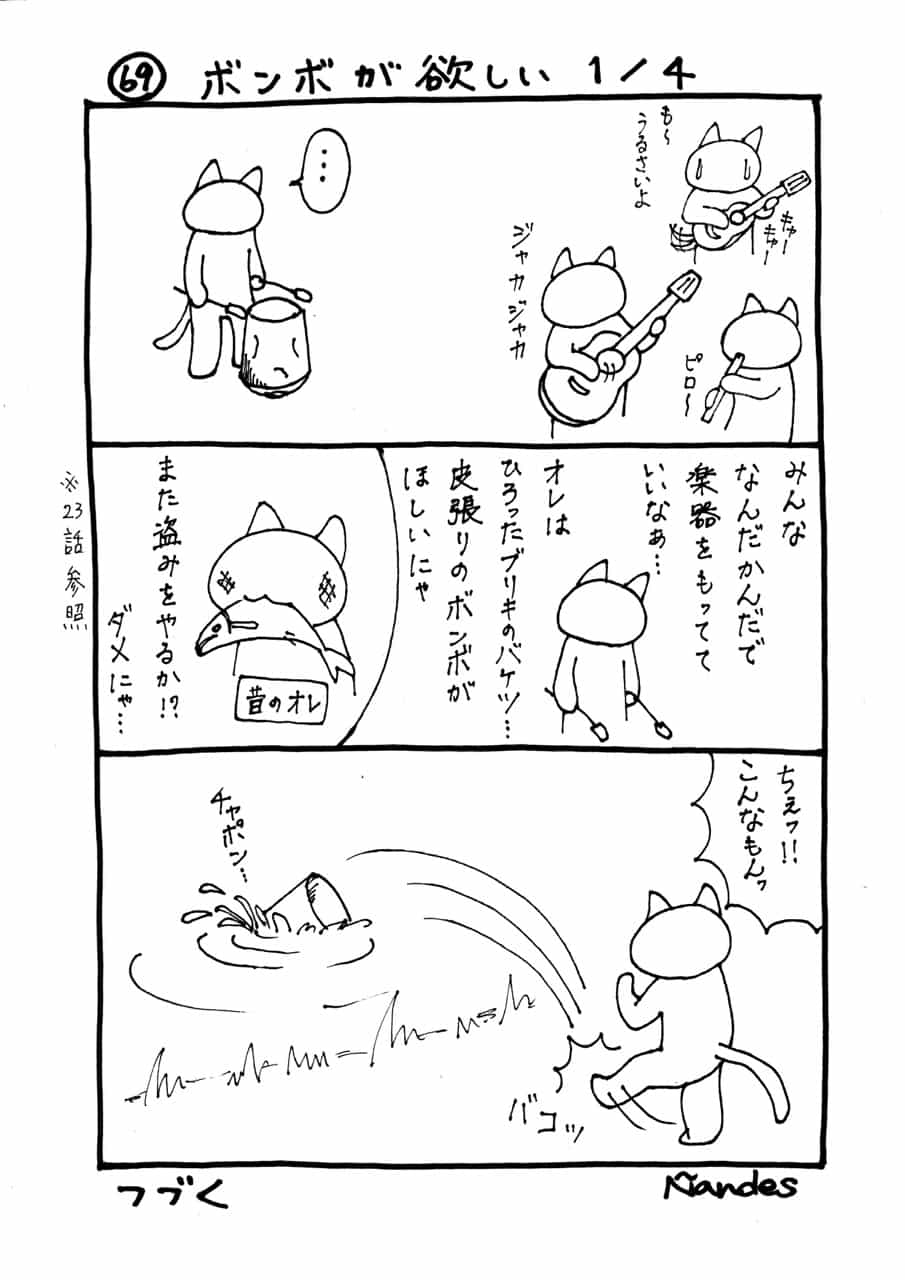 69 ボンボが欲しい 1/4
も〜
うるさいよ
キャー
キャー
ジャカジャカ
ピロ〜
…
みんな
なんだかんだで
楽器をもってて
いいなぁ…
オレは
ひろったブリキのバケツ…
皮張りのボンボが
ほしいにゃ
昔のオレ
また盗みをやるか!?
ダメにゃ…
※23話参照
ちぇッ!!
こんなもんッ
バコッ
チャポン…
つづく
Ñandes